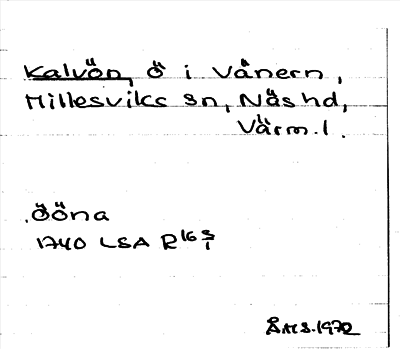 Kalvön, ö i Vänern,
Millesviks sn, Näs hd,
Värm. l.
Ööna
1740 LSA R16 5/1
ÅMS. 1972